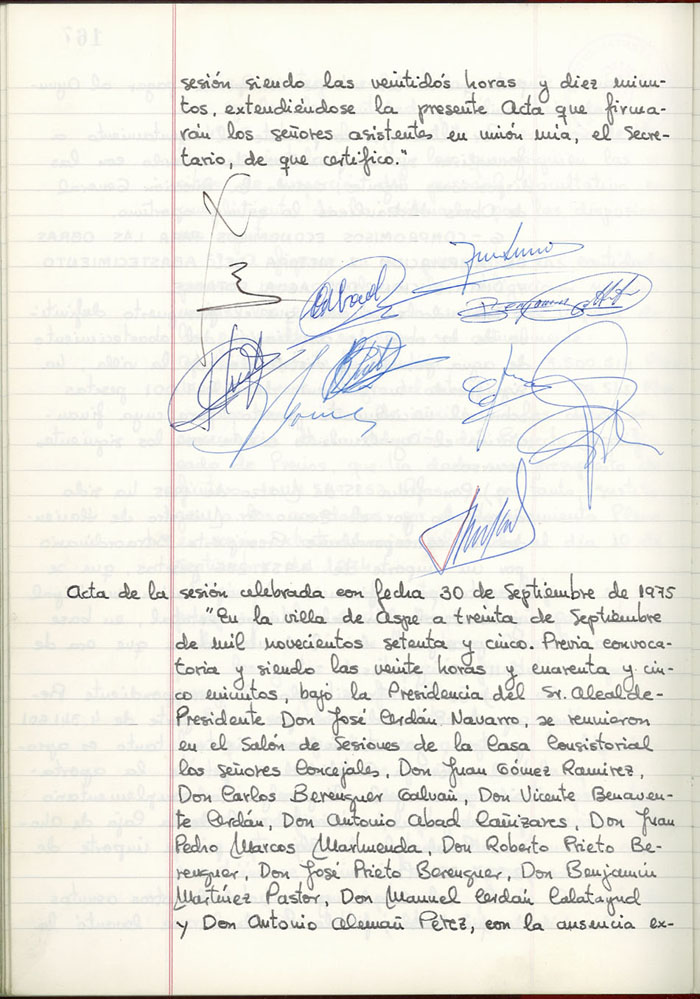 sesión siendo las veintidós horas y diez minu-
tos, extendiéndose la presente Acta que firma-
rán los señores asistentes en unión mía, el Secre-
tario, de que certifico."
Acta de la sesión celebrada con fecha 30 de Septiembre de 1975
"En la villa de Aspe a treinta de Septiembre
de mil novecientos setenta y cinco. Previa convoca-
toria y siendo las veinte horas y cuarenta y cin-
co minutos, bajo la Presidencia del Sr. Alcalde-
Presidente Don José Cerdán Navarro, se reunieron
en el Salón de Sesiones de la Casa Consistorial
los señores Concejales, Don Juan Gómez Ramirez,
Don Carlos Berenguer Galvañ, Don Vicente Benaven-
te Cerdán, Don Antonio Abad Cañizares, Don Juan
Pedro Marcos Marhuenda, Don Roberto Prieto Be-
renguer, Don José Prieto Berenguer, Don Benjamín
Martínez Pastor, Don Manuel Cerdán Calatayud
y Don Antonio Alemañ Pérez, con la ausencia ex-